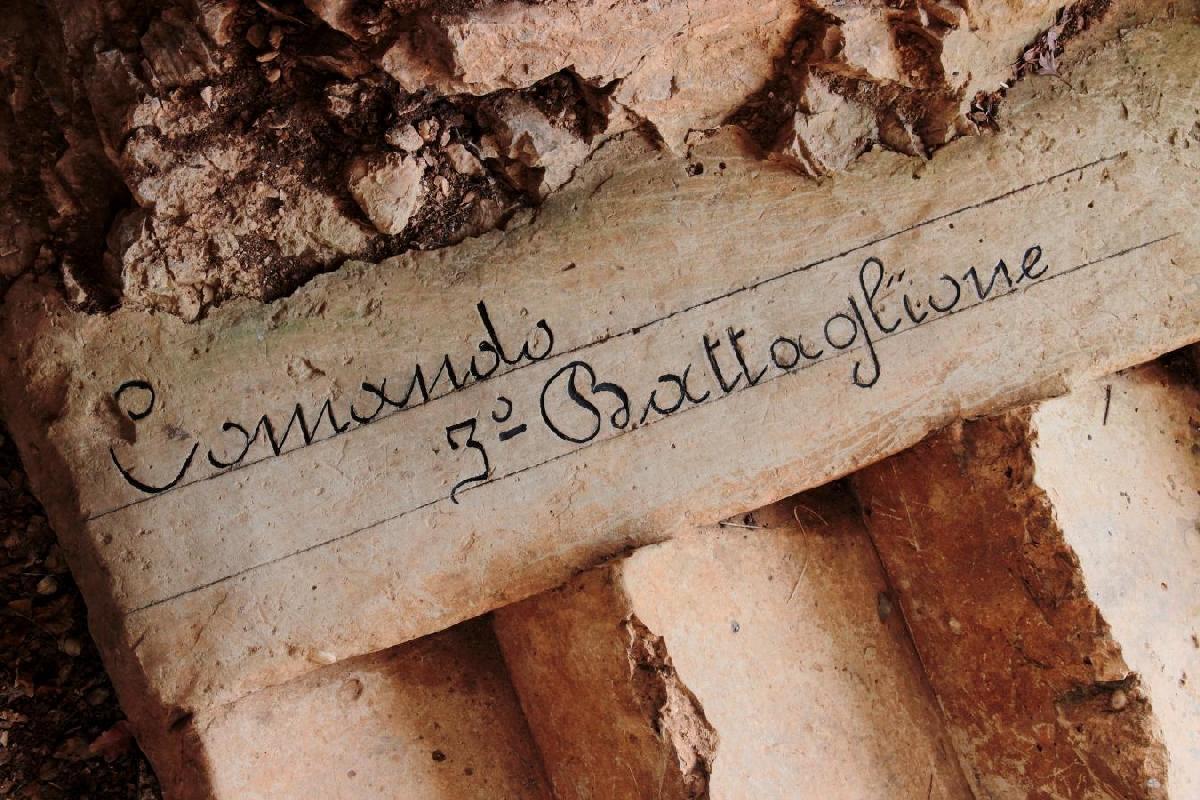 Comando
3º Battaglione